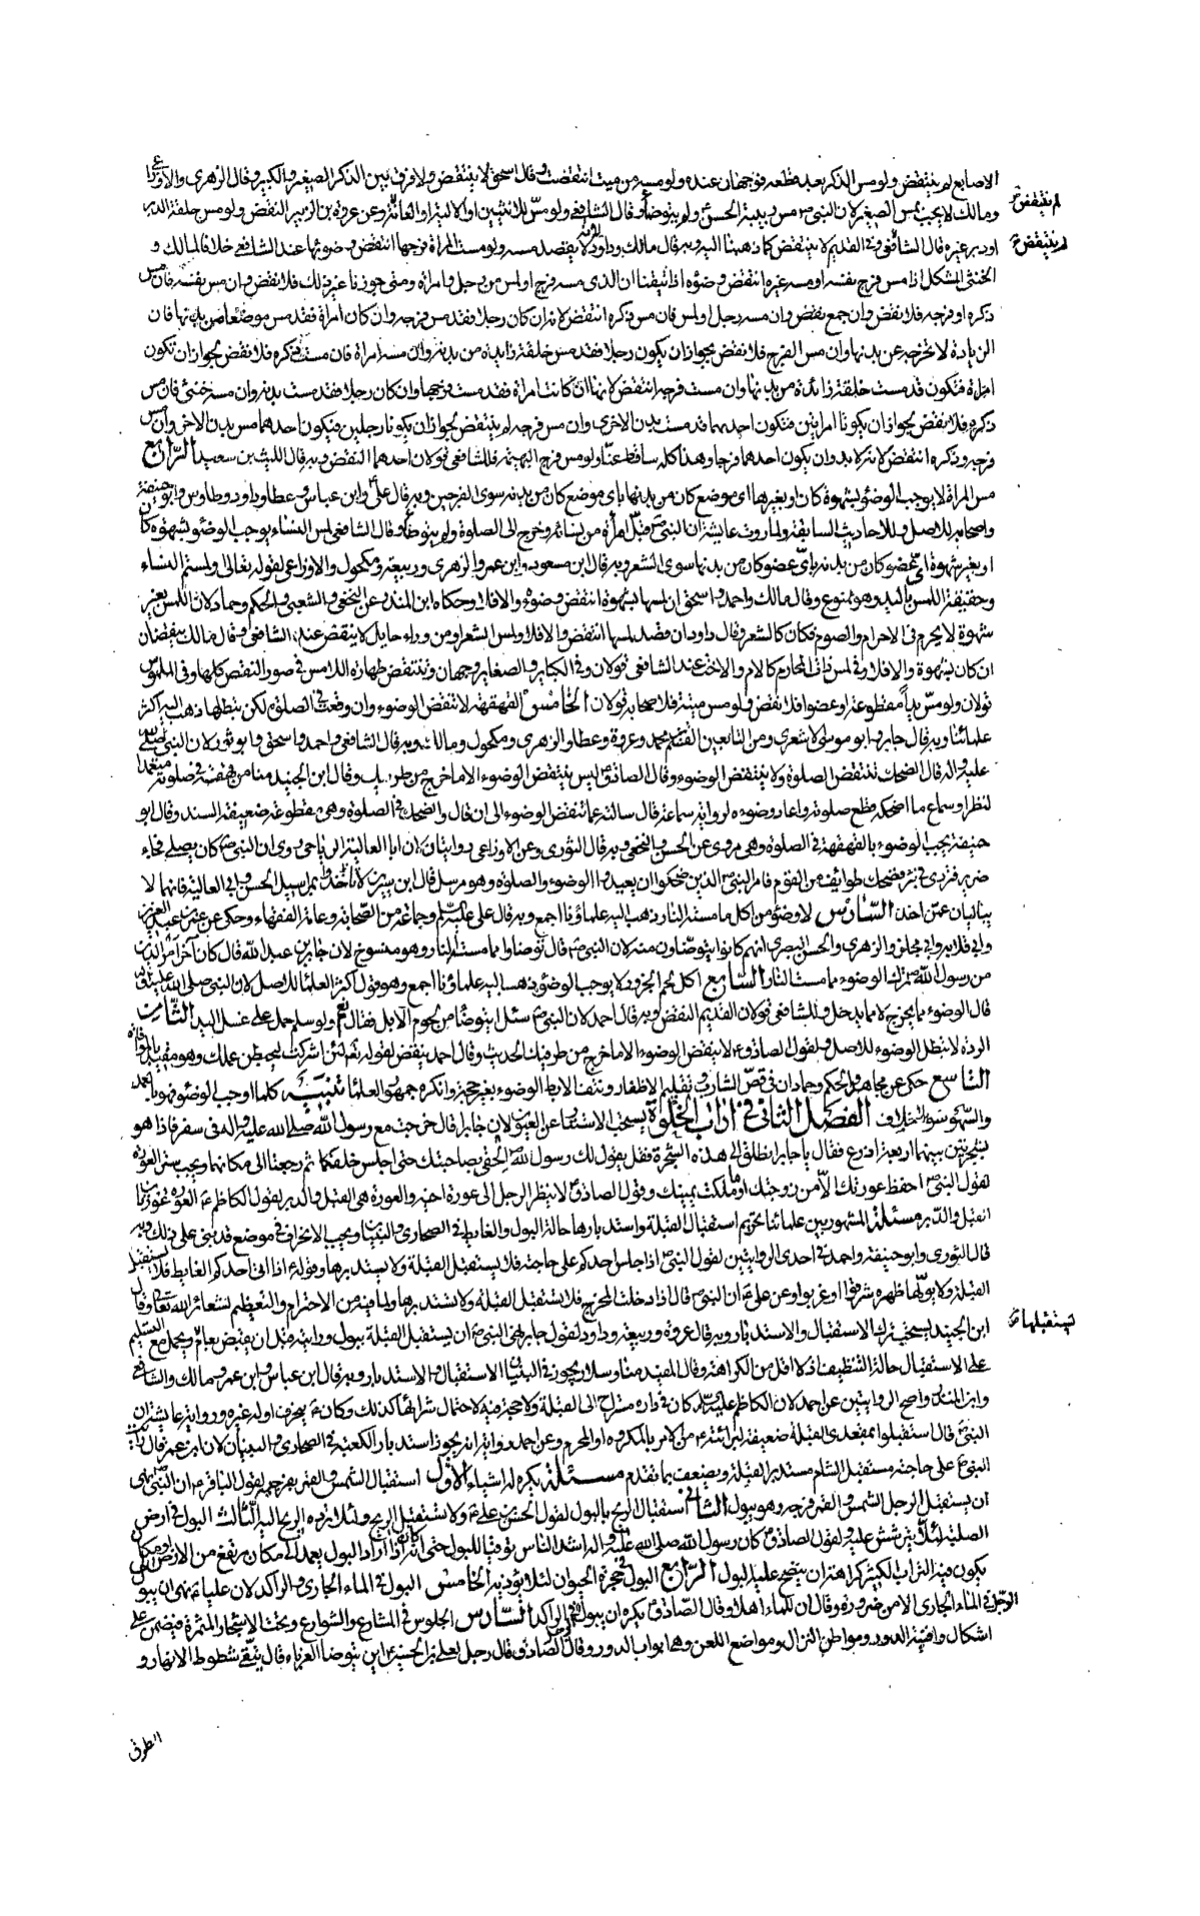 الاصابع لم ينتقض ولو مس الذكر بعد قطعه فوجهان عنده ولو مسه من ميت انتقضت وقال اسحق لا ينتقض ولا فرق بين الذكر الصغير والكبير وقال الزهري والاوزاعي
لم ينتقض
ومالك لا يجب بمس الصغير لان النبي ص مس زبيبة الحسن ولم يتوضأ وقال الشافعي ولو مس الانثيين او الالية او العانة وعن عروة بن الزبير النقض ولو مس حلقة الدبر
لم ينتقض
او دبر غيره قال الشافعي في القديم لا ينتقض كما ذهبنا اليه وبه قال مالك وداود لانه لا يقصد مسه ولو مست المراة فرجها انتقض وضوئها عند الشافعي خلافا لمالك و
الخنثى المشكل اذا مس فرج نفسه او مسه غيره انتقض وضوءه اذا تيقنا ان الذي مسه فرج او لمس من رجل او امراة ومتى جوزنا غير ذلك فلا نقض وان مس نفسه فان مس
ذكره او فرجه فلا نقض وان جمع نقض وان مسه رجل او لمس فان مس ذكره انتقض لانه ان كان رجلا فقد مس فرجه وان كان امراة فقد مس موضعا من بدنها فان
الزيادة لا تخرجه عن بدنها وان مس الفرج فلا نقض لجواز ان يكون رجلا فقد مس خلقة زايدة من بدنه وان مسه امراة فان مست ذكره فلا نقض لجواز ان تكون
امراة فتكون قد مست خلقة زائدة من بدنها وان مست فرجه انتقض لانها ان كانت امراة فقد مست فرجها وان كان رجلا فقد مست بدنه وان مسه خنثى فان مس
ذكره فلا نقض لجواز ان يكونا امراتين فتكون احديهما قد مست بدن الاخرى وان مس فرجه لم ينتقض لجواز ان يكونا رجلين فيكون احدهما مس بدن الاخر وان مس
فرجه وذكره انتقض لانه لا بد وان يكون احدهما فرجا وهذا كله ساقط عنا ولو مس فرج البهيمة فللشافعي قولان احدهما النقض وبه قال الليث بن سعد الرابع
مس المراة لا يوجب الوضوء لشهوة كان او بغيرها اي موضع كان من بدنها باي موضع كان من بدنه سوى الفرجين وبه قال علي ع وابن عباس وعطا وداود وطاوس وابو حنيفة
واصحابه للاصل وللاحاديث السابقة ولما روت عايشة ان النبي ص قبل امراة من نسائه وخرج الى الصلوة ولم يتوضأ وقال الشافعي لمس النساء يوجب الوضوء لشهوة كان
او بغير شهوة اي عضو كان من بدنه باي عضو كان من بدنها سوى الشعر وبه قال ابن مسعود وابن عمر والزهري وربيعة ومكحول والاوزاعي لقوله تعالى او لمستم النساء
وحقيقة اللمس باليد وهو ممنوع وقال مالك واحمد واسحق ان لمسها بشهوة انتقض وضوءه والا فلا وحكاه ابن المنذر عن النخعي والشعبي والحكم وحماد لان اللمس بغير
شهوة لا يحرم في الاحرام والصوم فكان كالشعر وقال داود ان قصد لمسها انتقض والا فلا ولمس الشعر او من وراء حايل لا ينقض عند الشافعي وقال مالك ينقضان
ان كان لشهوة والا فلا وفي لمس ذات المحارم كالام والاخت عند الشافعي قولان وفي الكباير والصغاير وجهان وينتقض طهارة اللامس في صور النقض كلها وفي الملموس
قولان ولو مس يدا مقطوعة او عضوا فلا نقض ولو مس ميتة فلاصحابه قولان الخامس القهقهة لا تنقض الوضوء وان وقعت في الصلوة لكن تبطلها ذهب اليه اكثر
علمائنا وبه قال جابر وابو موسى الاشعري ومن التابعين القسم بن محمد وعروة وعطا والزهري ومكحول ومالك وبه قال الشافعي واحمد واسحق وابو ثور لان النبي صلى الله
عليه واله قال الضحك تنتقض الصلوة ولا ينتقض الوضوء وقال الصادق ع ليس ينتقض الوضوء الا ما خرج من طرفيك وقال ابن الجنيد منا من قهقه في صلوته متعمدا
لنظر او سماع ما اضحكه قطع صلوته واعاد وضوءه لرواية سماعة قال سالته عما ينقض الوضوء الى ان قال والضحك في الصلوة وهي مقطوعة ضعيفة السند وقال ابو
حنيفة يجب الوضوء بالقهقهة في الصلوة وهي مروي عن الحسن والنخعي وبه قال الثوري وعن الاوزاعي روايتان لان ابا العالية الرياحي روى ان النبي ص كان يصلي فجاء
ضرير فتردى في بئر فضحك طوائف من القوم فامر النبي ص الذين ضحكوا ان يعيدوا الوضوء والصلوة وهو مرسل قال ابن سيرين لا تاخذوا بمراسيل الحسن وابي العالية فانهما لا
يباليان عمن اخذا السادس لا وضوء من اكل ما مسته النار ذهب اليه علماؤنا اجمع وبه قال علي عليه السلم وجماعة من الصحابة وعامة الفقهاء وحكي عن عمر بن عبد العزيز
وابي قلابة وابي مجلز والزهري والحسن البصري انهم كانوا يتوضاون منه لان النبي ص قال توضاوا مما مسته النار وهو منسوخ لان جابر بن عبد الله قال كان آخر الامرين
من رسول الله ص ترك الوضوء مما مست النار السابع اكل لحم الجزور لا يوجب الوضوء ذهب اليه علماؤنا اجمع وهو قول اكثر العلماء للاصل لان النبي صلى الله عليه واله
قال الوضوء مما يخرج لا مما يدخل وللشافعي قولان القديم النقض وبه قال احمد لان النبي ص سئل انتوضأ من لحوم الابل فقال نعم ولو سلم حمل على غسل اليد الثامن
الردة لا تبطل الوضوء للاصل ولقول الصادق ع لا ينقض الوضوء الا ما خرج من طرفيك الحديث وقال احمد ينقض لقوله تعالى لئن اشركت ليحبطن عملك وهو مقيد بالموافاة
التاسع حكي عن مجاهد والحكم وحماد ان في قص الشارب وتقليم الاظفار ونتف الابط الوضوء بغير حجة وانكره جمهور العلماء تنبيه كلما اوجب الوضوء فهو بالعمد
والسهو سواء بلا خلاف الفصل الثاني في اداب الخلوة يستحب الاستتار عن العيون لان جابرا قال خرجت مع رسول الله صلى الله عليه واله في سفر فاذا هو
بشجرتين بينهما اربعة اذرع فقال يا جابر انطلق الى هذه الشجرة فقل يقول لك رسول الله ص الحقي بصاحبتك حتى اجلس خلفكما ثم رجعتا الى مكانهما ويجب ستر العورة
لقول النبي ص احفظ عورتك الا من زوجتك او ما ملكت يمينك وقول الصادق ع لا ينظر الرجل الى عورة اخيه والعورة هي القبل والدبر لقول الكاظم ع العورة عورتان
القبل والدبر مسئلة المشهور بين علمائنا تحريم استقبال القبلة واستدبارها حالة البول والغايط في الصحاري والبنيان ويجب الانحراف في موضع قد بني على ذلك وبه
قال الثوري وابو حنيفة واحمد في احدى الروايتين لقول النبي ص اذا جلس احدكم على حاجته فلا يستقبل القبلة ولا يستدبرها وقوله ع اذا اتى احدكم الغايط فلا يستقبل
القبلة ولا يولها ظهره شرقوا او غربوا وعن علي ع ان النبي ص قال اذا دخلت المخرج فلا تستقبل القبلة ولا تستدبرها ولما فيه من الاحترام والتعظيم لشعائر الله تعالى وقال
ابن الجنيد يستحب ترك الاستقبال والاستدبار وبه قال عروة وربيعة وداود لقول جابر نهى النبي ص ان يستقبل القبلة ببول ورايته قبل ان يقبض بعام ويحمل مع التسليم
يستقبلها
على الاستقبال حالة التنظيف اذ لا اقل من الكراهة وقال المفيد منا وسلار يجوز في البنيان الاستقبال والاستدبار وبه قال ابن عباس وابن عمر ومالك والشافعي
وابن المنذر واصح الروايتين عن احمد لان الكاظم عليه السلم كان في داره مستراح الى القبلة ولا حجة فيه لاحتمال شرائها كذلك وكان ع ينحرف او له غيره ورواية عايشة ان
النبي ص قال استقبلوا بمقعدي القبلة ضعيفة لبرائته ع من الامر بالمكروه او المحرم وعن احمد رواية انه يجوز استدبار الكعبة في الصحاري والبنيان لان ابن عمر قال رايت
النبي ص على حاجته مستقبل الشام مستدبر القبلة ويضعف بما تقدم مسئلة يكره له اشياء الاول استقبال الشمس والقمر بفرجه لقول الباقر ع ان النبي ص نهى
ان يستقبل الرجل الشمس والقمر بفرجه وهو يبول الثاني استقبال الريح بالبول لقول الحسن بن علي ع ولا تستقبل الريح ولئلا ترده الريح اليه الثالث البول في ارض
الصلبة لئلا يترشش عليه ولقول الصادق ع كان رسول الله صلى الله عليه واله اشد الناس توقيا للبول حتى انه كان اذا اراد البول يعمد الى مكان مرتفع من الارض او مكان
يكون فيه التراب الكثير كراهة ان ينضح عليه البول الرابع البول في جحرة الحيوان لئلا يؤذيه الخامس البول في الماء الجاري والراكد لان عليا ع نهى ان يبول
الرجل في الماء الجاري الا من ضرورة وقال ان للماء اهلا وقال الصادق ع يكره ان يبول في الراكد السادس الجلوس في المشارع والشوارع وتحت الاشجار المثمرة فيضمن على
اشكال وافنية الدور ومواطن النزال ومواضع اللعن وهي ابواب الدور وقال الصادق ع قال رجل لعلي بن الحسين ع اين يتوضا الغرباء قال يتقي شطوط الانهار و
الطرق